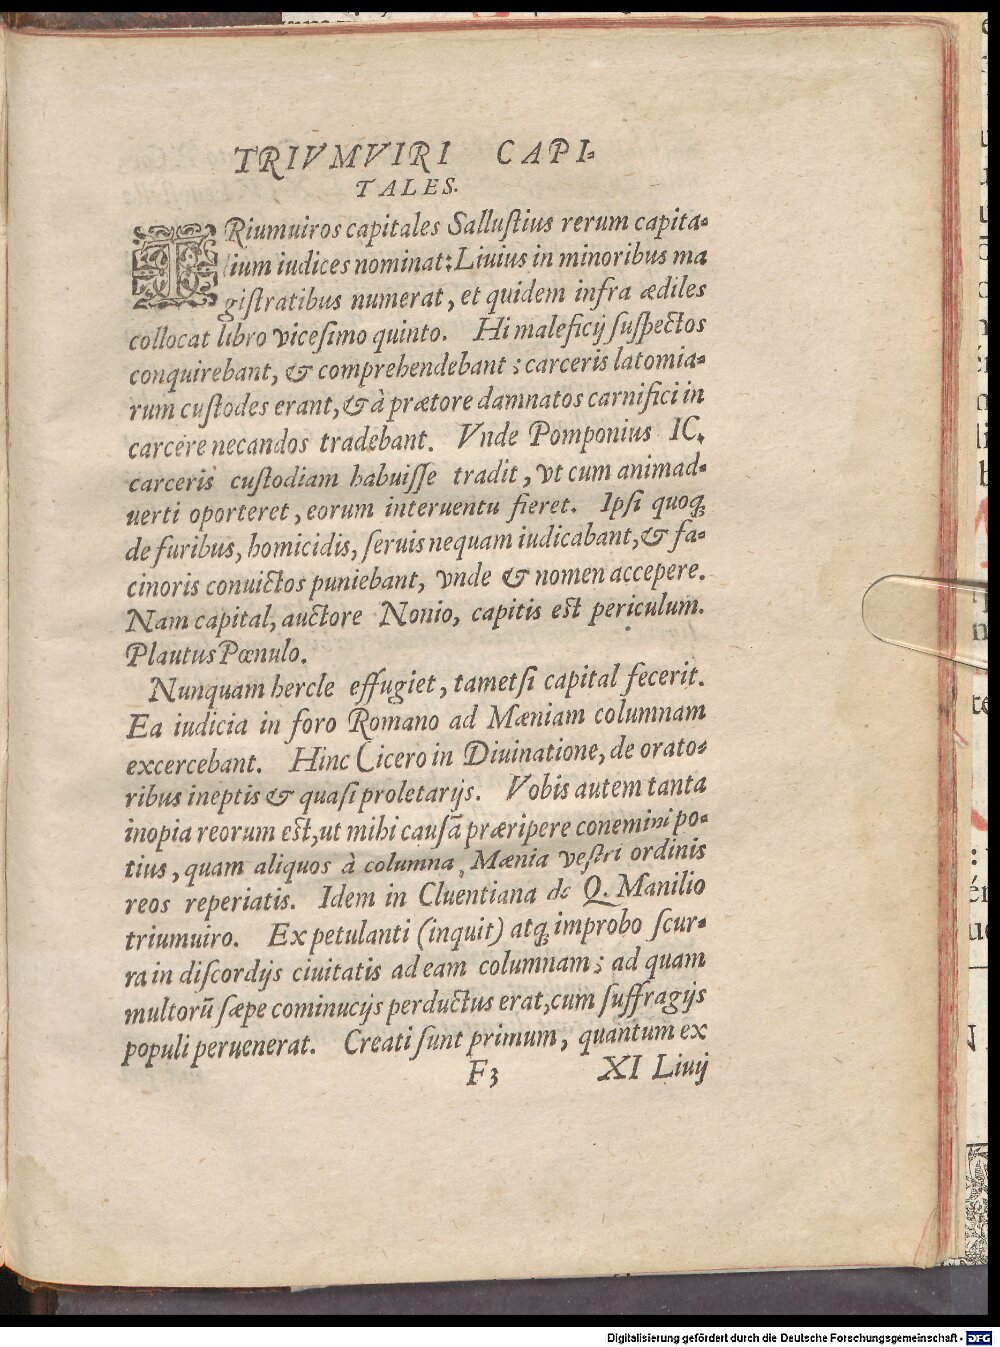 TRIVMVIRI CAPI-
TALES.
TRiumuiros capitales Sallustius rerum capita-
lium iudices nominat: Liuius in minoribus ma
gistratibus numerat, et quidem infra ædiles
collocat libro vicesimo quinto. Hi maleficij suspectos
conquirebant, & comprehendebant; carceris latomia-
rum custodes erant, & à prætore damnatos carnifici in
carcere necandos tradebant. Vnde Pomponius IC.
carceris custodiam habuisse tradit, vt cum animad-
uerti oporteret, eorum interuentu fieret. Ipsi quoq;
de furibus, homicidis, seruis nequam iudicabant, & fa-
cinoris conuictos puniebant, vnde & nomen accepere.
Nam capital, auctore Nonio, capitis est periculum.
Plautus Pœnulo.
Nunquam hercle effugiet, tametsi capital fecerit.
Ea iudicia in foro Romano ad Mæniam columnam
excercebant. Hinc Cicero in Diuinatione, de orato-
ribus ineptis & quasi proletarijs. Vobis autem tanta
inopia reorum est, ut mihi causā præripere conemini po-
tius, quam aliquos à columna, Mænia vestri ordinis
reos reperiatis. Idem in Cluentiana de Q. Manilio
triumuiro. Ex petulanti (inquit) atq; improbo scur-
ra in discordijs ciuitatis ad eam columnam; ad quam
multorū sæpe cominucijs perductus erat, cum suffragijs
populi peruenerat. Creati sunt primum, quantum ex
F3 XI Liuij
Digitalisierung gefördert durch die Deutsche Forschungsgemeinschaft - DFG